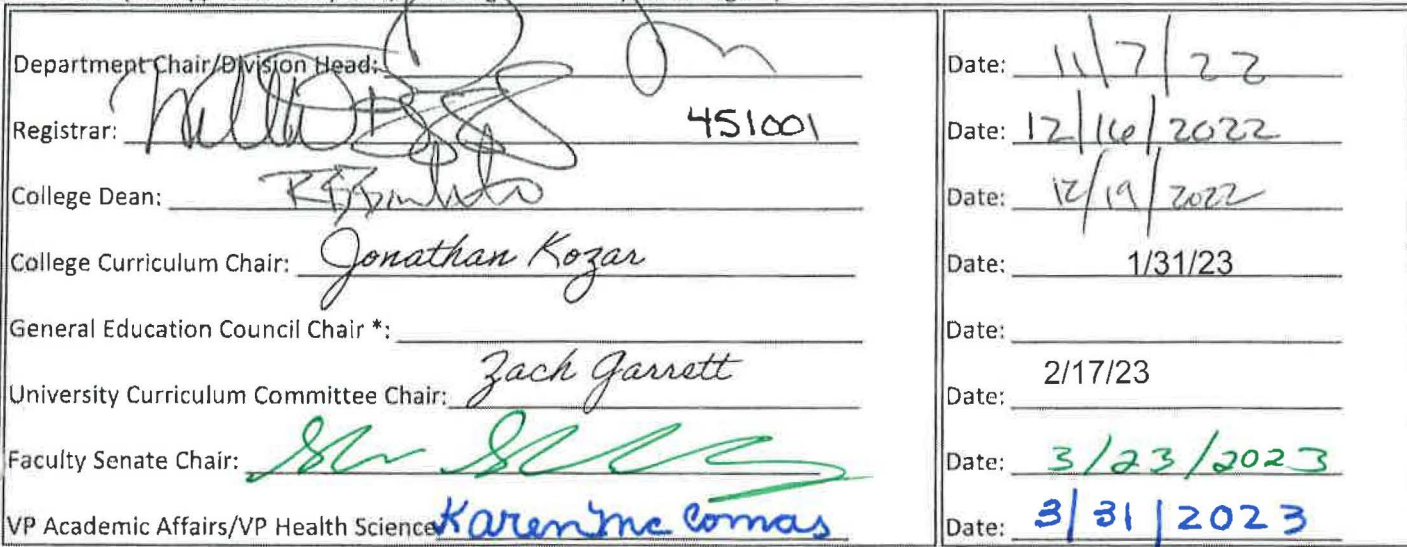 Department Chair/Division Head: Date: 11/7/22
Registrar: 451001 Date: 12/16/2022
College Dean: Date: 12/19/2022
College Curriculum Chair: Jonathan Kozar Date: 1/31/23
General Education Council Chair *: Date:
University Curriculum Committee Chair: Zach Garrett Date: 2/17/23
Faculty Senate Chair: Date: 3/23/2023
VP Academic Affairs/VP Health Science Karen McComas Date: 3/31/2023